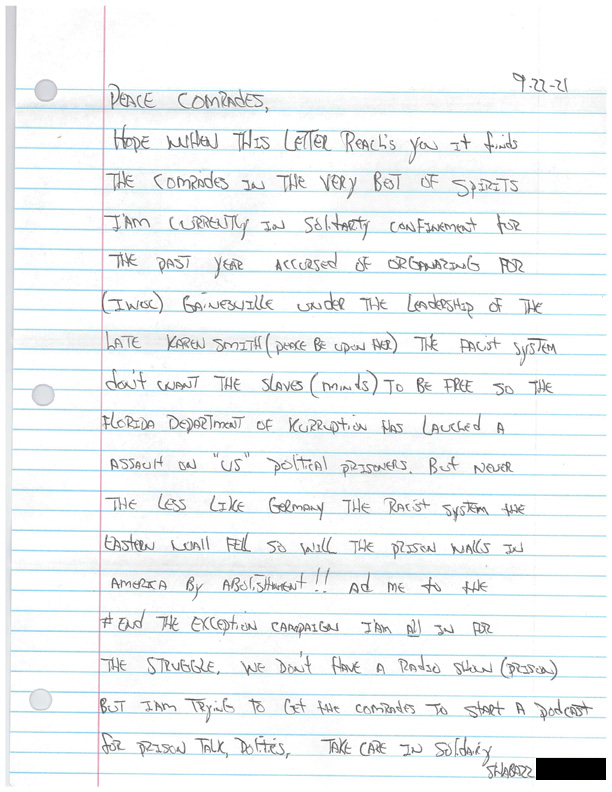 9-22-21
PEACE COMRADES,
HOPE WHEN THIS LETTER Reachs you it finds
THE COMRADES IN THE VERY BEST OF SPIRITS
I'AM CURRENTLY IN SOLITARTY CONFINEMENT FOR
THE PAST YEAR ACCURSED OF ORGANAZING FOR
(IWOC) GAINESVILLE UNDER THE LEADERSHIP OF THE
LATE KAREN SMITH (PEACE BE UPON HER) THE FACIST SYSTEM
don't WANT THE SLAVES (MINDS) TO BE FREE SO THE
FLORIDA DEPARTMENT OF KURRUPTION HAS LAUCHED A
ASSAULT ON "US" POLTICAL PRISONERS. BUT NEVER
THE LESS LIKE GERMANY THE RACIST SYSTEM the
EASTERN WALL FELL SO WILL THE PRISON WALLS IN
AMERICA BY ABOLISHMENT!! AD ME to the
#END THE EXCEPTION CAMPAIGN I'AM All IN FOR
THE STRUGGLE. WE DON'T HAVE A RADIO SHOW (PRISON)
BUT I AM TRYING TO GET the COMRADES TO START A podcast
for PRISON TALK, POLITIES, TAKE CARE IN Soldiary
SHABAZZ